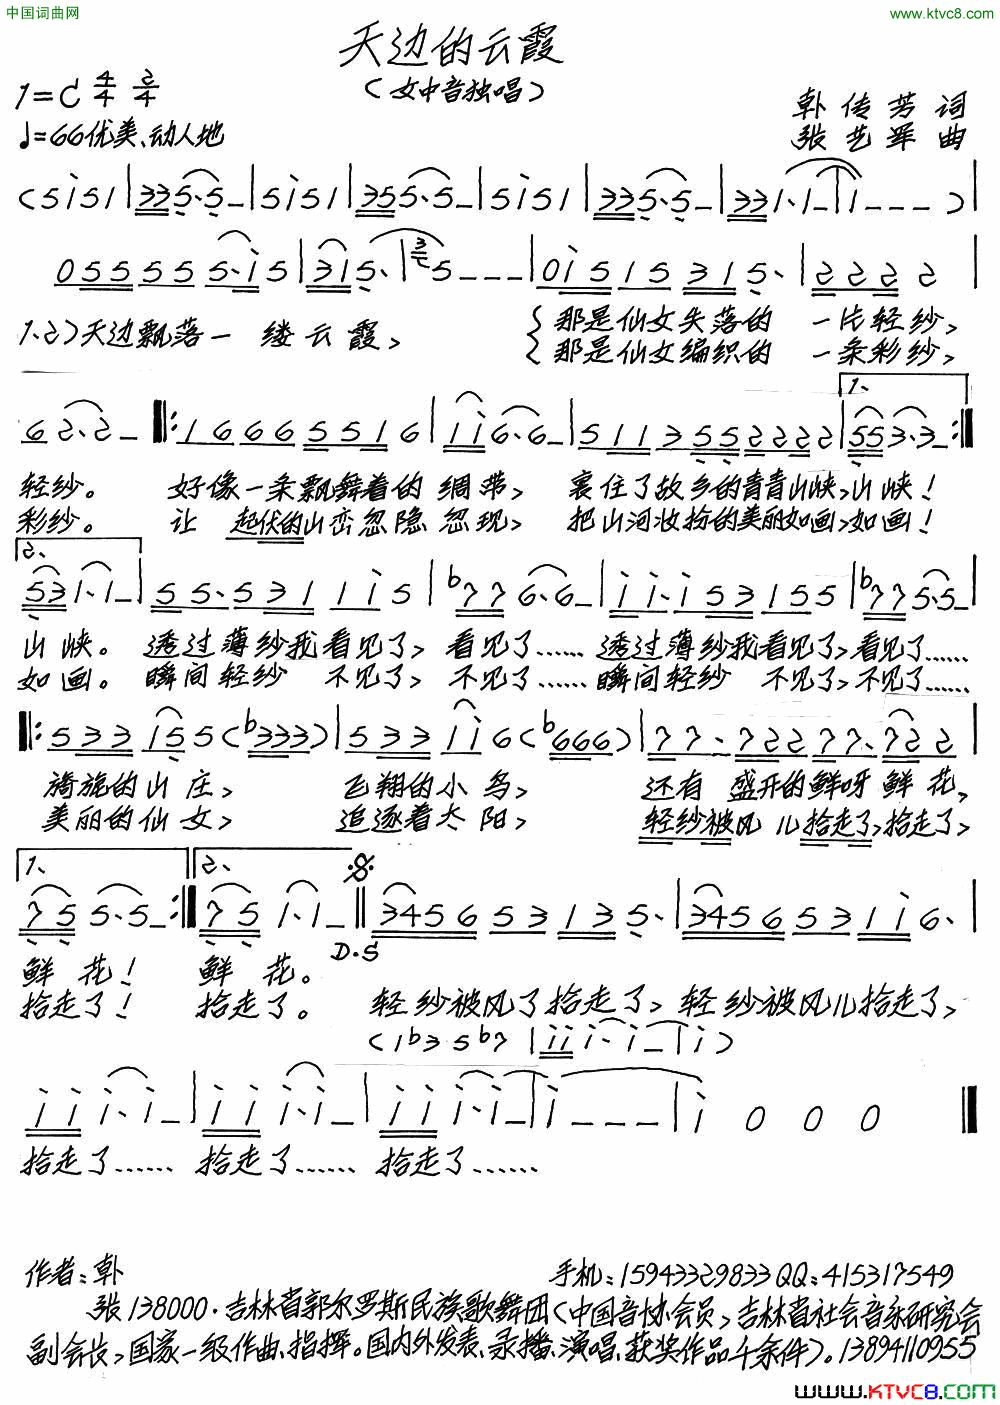 中国词曲网 www.ktvc8.com
天边的云霞
(女中音独唱)
1=C 4/4 2/4
♩=66优美、动人地
韩传芳 词
张艺军 曲
(5 i 5 1 | 3 3 5· 5 - | 5 i 5 1 | 3 5 5· 5 - | 5 i 5 1 | 3 3 5· 5 - | 3 3 1· 1 - | 1 - - - ) |
0 5 5 5 5 5 5· i 5 | 3 1 5· | 5 - - - | 0 i 5 1 5 3 1 5· | 2 2 2 2 |
1.2)天边飘落一 缕云霞, 那是仙女失落的 一片轻纱,
那是仙女编织的 一条彩纱,
6 2· 2 - ‖: 1 6 6 6 5 5 1 6 | i i 6· 6 - | 5 1 1 3 5 5 2 2 2 2 | 1. 5 5 3· 3 - :‖
轻纱。 好像一条飘舞着的绸带, 裹住了故乡的青青山峡,山峡!
彩纱。 让 起伏的山峦忽隐忽现, 把山河妆扮的美丽如画,如画!
2. 5 3 1· 1 - | 5 5· 5 3 1 1 i 5 | b7 7 6· 6 - | i i· i 5 3 1 5 5 | b7 7 5· 5 - |
山峡。透过薄纱我看见了, 看见了…… 透过薄纱我看见了,看见了……
如画。 瞬间轻纱 不见了, 不见了…… 瞬间轻纱 不见了,不见了……
‖: 5 3 3 1 5 5 (b3 3 3) | 5 3 3 i i 6 (b6 6 6) | 7 7· 7 2 2 7 7· 7 2 2 |
旖旎的山庄, 飞翔的小鸟, 还有 盛开的鲜呀鲜花,
美丽的仙女, 追逐着太阳, 轻纱被风儿拾走了,拾走了,
1. 7 5 5· 5 - :‖ 2. 7 5 1· 1 - ‖ D.S 3 4 5 6 5 3 1 3 5· | 3 4 5 6 5 3 1 i 6· |
鲜花! 鲜花。
拾走了! 拾走了。 轻纱被风了拾走了, 轻纱被风儿拾走了,
(1 b3 5 b7 | i i i· i - | i )
i i i· i - | i i i· i - | i i i· i - | i - - - | i 0 0 0 ‖
拾走了…… 拾走了…… 拾走了……
作者:韩 手机:15943329833 QQ:415317549
张 138000·吉林省郭尔罗斯民族歌舞团(中国音协会员,吉林省社会音乐研究会
副会长,国家一级作曲、指挥。国内外发表、录播、演唱、获奖作品千余件)。13894110955
www.KTVC8.com